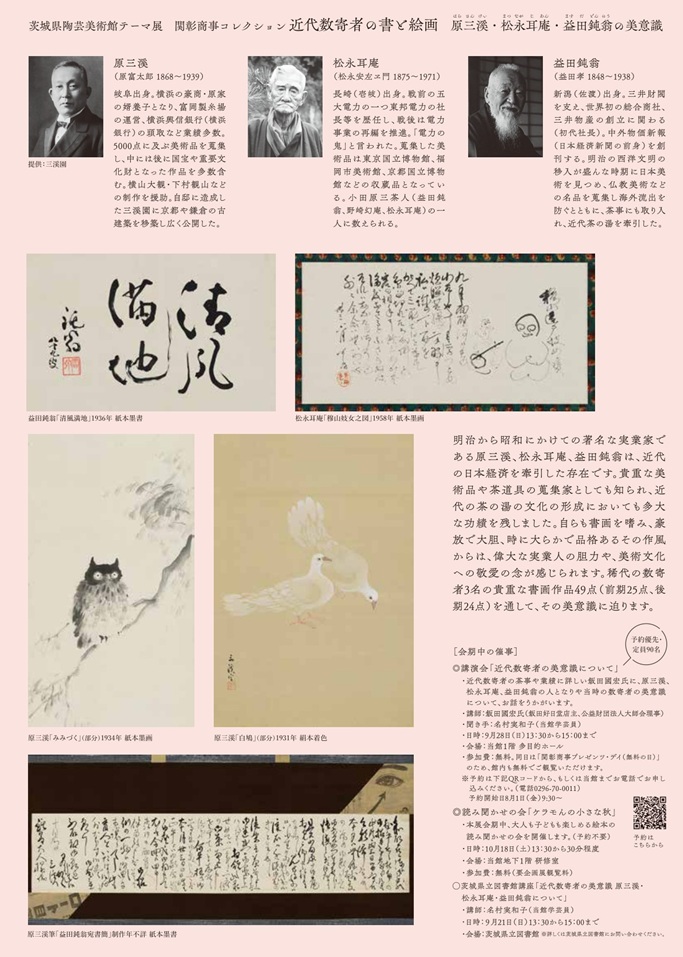 茨城県陶芸美術館テーマ展　関彰商事コレクション 近代数寄者の書と絵画　原三溪・松永耳庵・益田鈍翁の美意識
はら さんけい　まつなが じあん　ますだ どんのう
原三溪
（原富太郎 1868〜1939）
岐阜出身。横浜の豪商・原家
の婿養子となり、富岡製糸場
の運営、横浜興信銀行（横浜
銀行）の頭取など業績多数。
5000点に及ぶ美術品を蒐集
し、中には後に国宝や重要文
化財となった作品を多数含
む。横山大観・下村観山など
の制作を援助。自邸に造成し
た三溪園に京都や鎌倉の古
建築を移築し広く公開した。
提供：三溪園
松永耳庵
（松永安左ヱ門 1875〜1971）
長崎（壱岐）出身。戦前の五
大電力の一つ東邦電力の社
長等を歴任し、戦後は電力
事業の再編を推進。「電力の
鬼」と言われた。蒐集した美
術品は東京国立博物館、福
岡市美術館、京都国立博物
館などの収蔵品となってい
る。小田原三茶人（益田鈍
翁、野崎幻庵、松永耳庵）の一
人に数えられる。
益田鈍翁
（益田孝 1848〜1938）
新潟（佐渡）出身。三井財閥
を支え、世界初の総合商社、
三井物産の創立に関わる
（初代社長）。中外物価新報
（日本経済新聞の前身）を創
刊する。明治の西洋文明の
移入が盛んな時期に日本美
術を見つめ、仏教美術など
の名品を蒐集し海外流出を
防ぐとともに、茶事にも取り入
れ、近代茶の湯を牽引した。
清風
満地
鈍翁
益田鈍翁「清風満地」1936年 紙本墨書
松永耳庵「檪山岐女之図」1958年 紙本墨画
明治から昭和にかけての著名な実業家で
ある原三溪、松永耳庵、益田鈍翁は、近代
の日本経済を牽引した存在です。貴重な美
術品や茶道具の蒐集家としても知られ、近
代の茶の湯の文化の形成においても多大
な功績を残しました。自らも書画を嗜み、豪
放で大胆、時に大らかで品格あるその作風
からは、偉大な実業人の胆力や、美術文化
への敬愛の念が感じられます。稀代の数寄
者3名の貴重な書画作品49点（前期25点、後
期24点）を通して、その美意識に迫ります。
原三溪「みみづく」（部分）1934年 紙本墨画
三溪
原三溪「白鳩」（部分）1931年 絹本着色
原三溪筆「益田鈍翁宛書簡」制作年不詳 紙本墨書
予約優先・
定員90名
［会期中の催事］
◎講演会「近代数寄者の美意識について」
・近代数寄者の茶事や業績に詳しい飯田國宏氏に、原三溪、
松永耳庵、益田鈍翁の人となりや当時の数寄者の美意識
について、お話をうかがいます。
・講師：飯田國宏氏（飯田好日堂店主、公益財団法人大師会理事）
・聞き手：名村実和子（当館学芸員）
・日時：9月28日（日）13:30から15:00まで
・会場：当館1階 多目的ホール
・参加費：無料。同日は「関彰商事プレゼンツ・デイ（無料の日）」
のため、館内も無料でご観覧いただけます。
※予約は下記QRコードから、もしくは当館までお電話でお申し
込みください。（電話0296-70-0011）
予約開始日8月1日（金）9:30〜
◎読み聞かせの会「ケラモんの小さな秋」
・本展会期中、大人も子どもも楽しめる絵本の
読み聞かせの会を開催します。（予約不要）
・日時：10月18日（土）13:30から30分程度
・会場：当館地下1階 研修室
・参加費：無料（要企画展観覧料）
予約は
こちらから
〇茨城県立図書館講座「近代数寄者の美意識 原三溪・
松永耳庵・益田鈍翁について」
・講師：名村実和子（当館学芸員）
・日時：9月21日（日）13:30から15:00まで
・会場：茨城県立図書館 ※詳しくは茨城県立図書館にお問い合わせください。